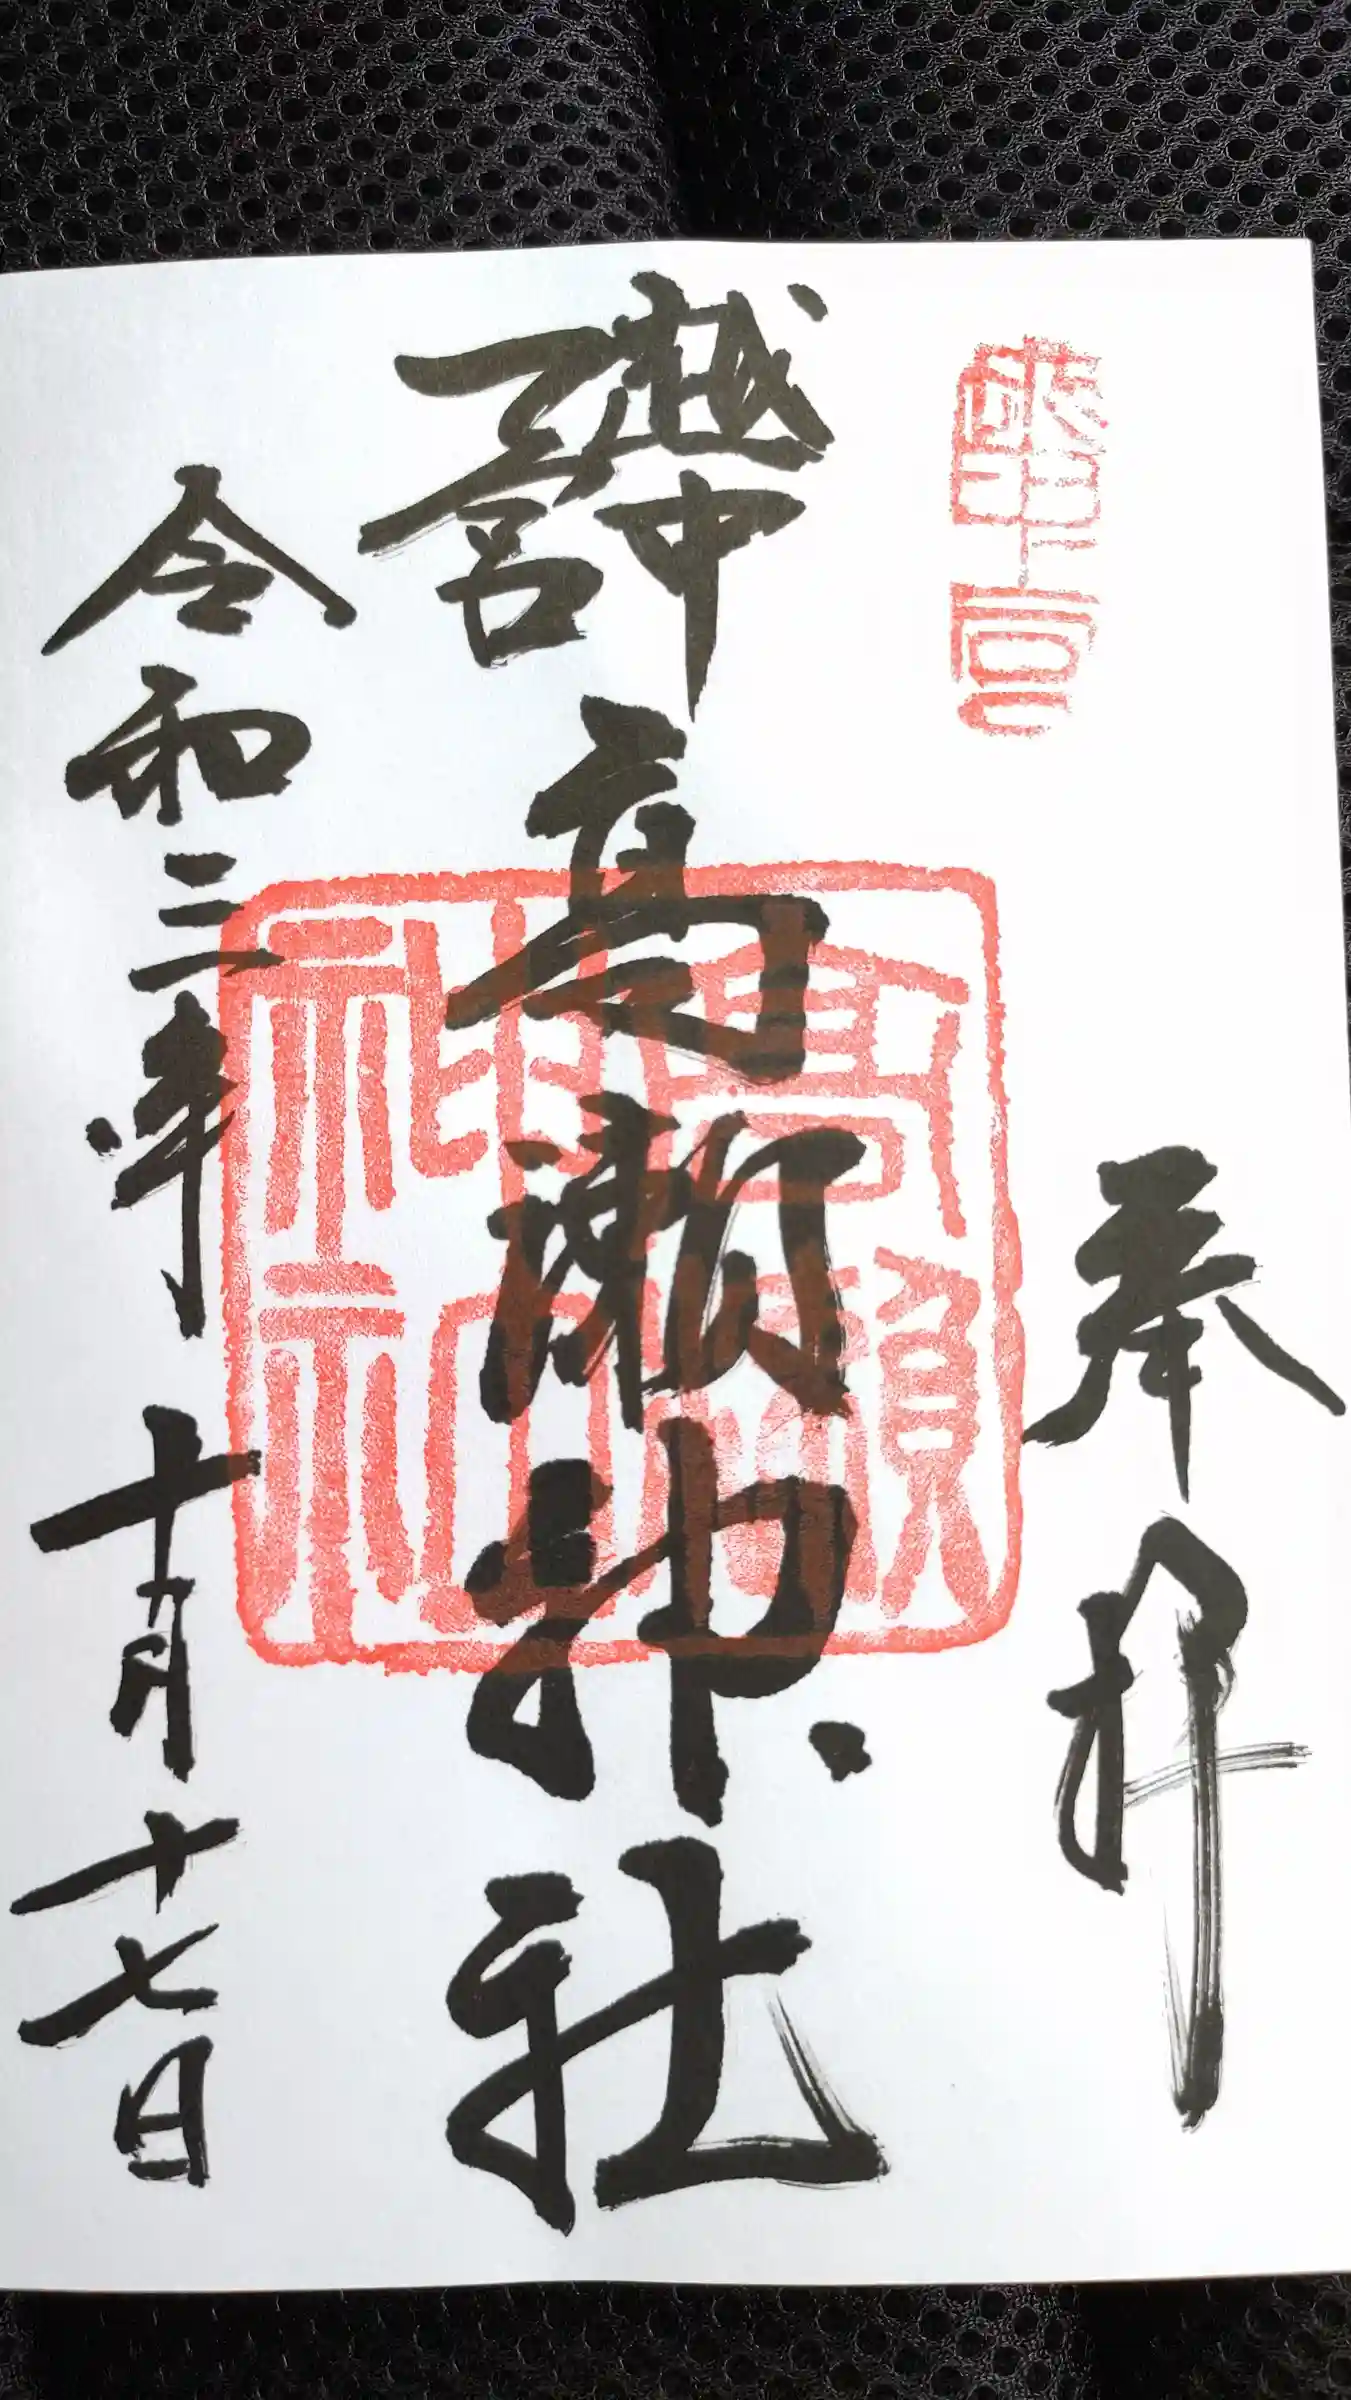 奉拝
越中
一宮
高瀬神社
高瀬神社
令和二年十月十七日